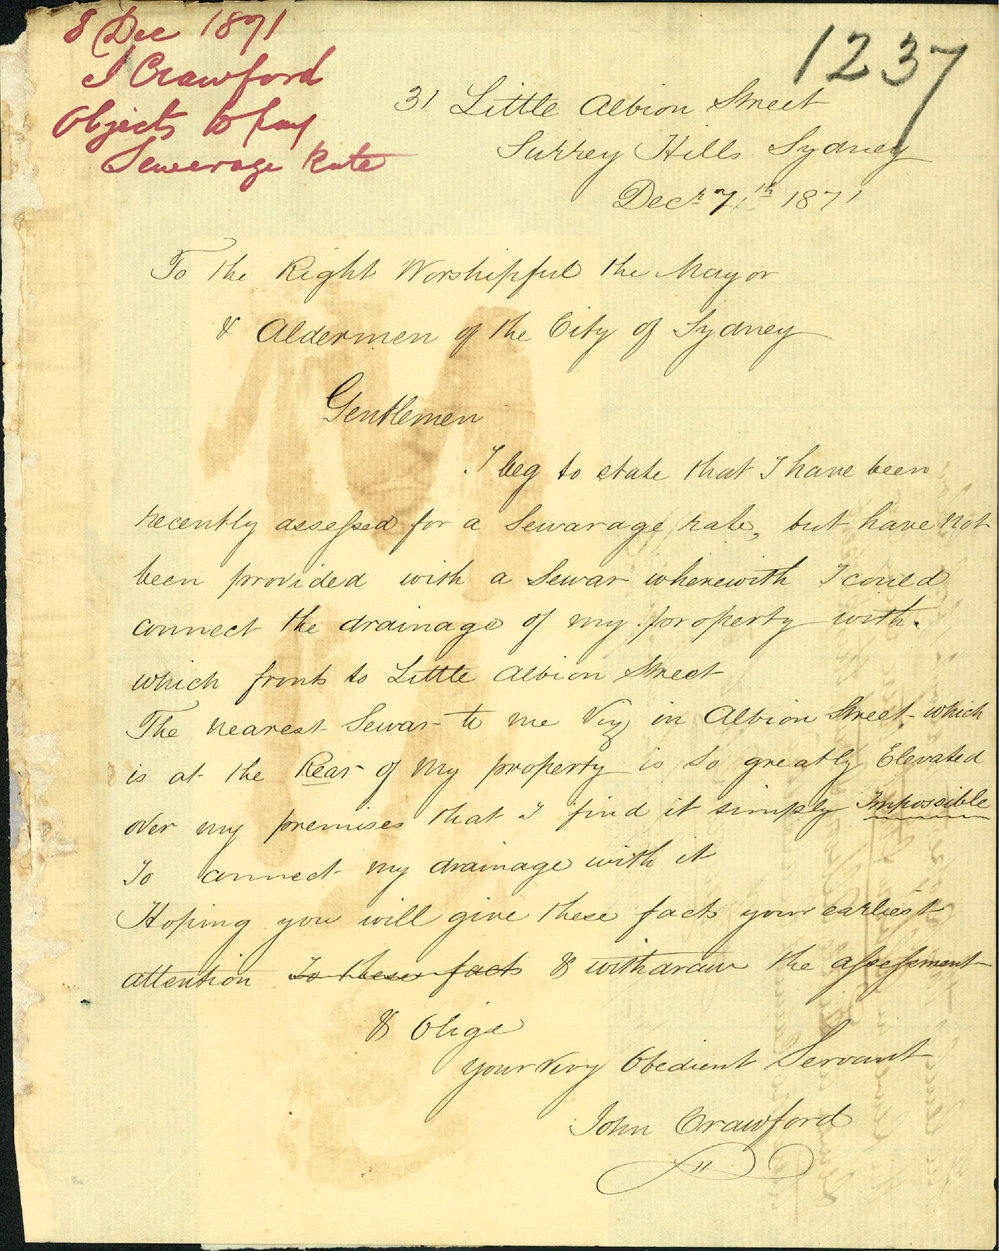 8 Dec 1871
J Crawford
Objects to pay
Sewerage Rate
1237
31 Little Albion Street
Surrey Hills Sydney
Decr 7th 1871
To the Right Worshipful the Mayor
& Aldermen of the City of Sydney
Gentlemen
I beg to state that I have been
recently assessed for a Sewarage rate, but have not
been provided with a Sewar wherewith I could
connect the drainage of my property with.
which fronts to Little Albion Street
The nearest Sewar to me Viz in Albion Street which
is at the Rear of My property is so greatly Elevated
over my premises that I find it simply Impossible
To connect my drainage with it
Hoping you will give these facts your earliest
attention to these facts & withdraw the assessment
& Oblige
Your Very Obedient Servant
John Crawford